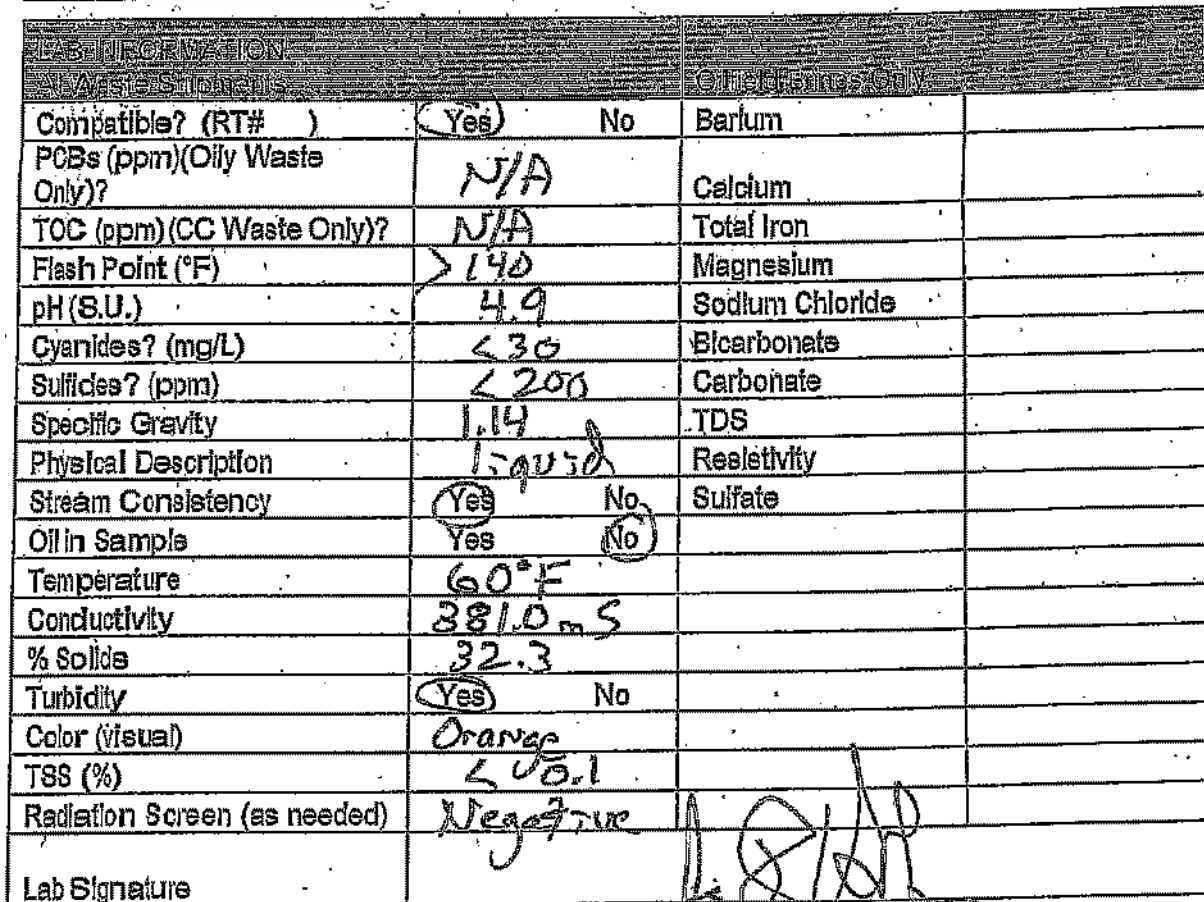 LAB INFORMATION
All Waste Shipments Only
Compatible? (RT# ) Yes No Barium
PCBs (ppm)(Oily Waste
Only)? N/A Calcium
TOC (ppm)(CC Waste Only)? N/A Total Iron
Flash Point (°F) >140 Magnesium
pH (S.U.) 4.9 Sodium Chloride
Cyanides? (mg/L) <30 Bicarbonate
Sulfides? (ppm) <200 Carbonate
Specific Gravity 1.14 TDS
Physical Description liquid Resistivity
Stream Consistency Yes No Sulfate
Oil in Sample Yes No
Temperature 60°F
Conductivity 381.0 mS
% Solids 32.3
Turbidity Yes No
Color (visual) Orange
TSS (%) <0.1
Radiation Screen (as needed) Negative
Lab Signature